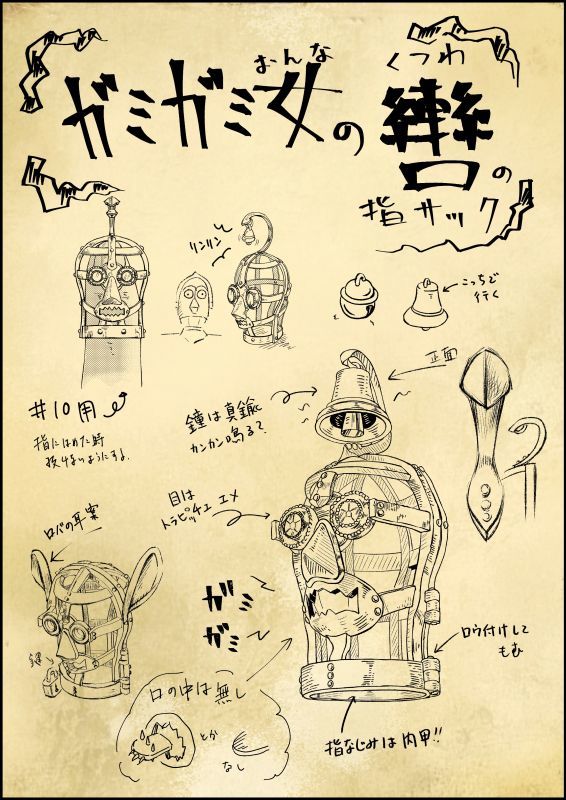 おんな
ガミガミ女の
くつわ
轡の
指サック
リンリン
こっちで
行く
正面
#10用
指にはめた時
抜けないようにする
鐘は真鍮
カンカン鳴るで
目は
トラピッチェ エメ
ロバの耳案
鍵
ガミ
ガミ
ロウ付けして
もむ
口の中は無し
とか
なし
指なじみは内甲!!